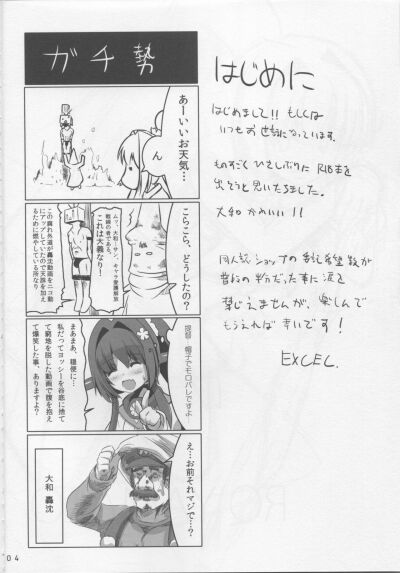 ガチ勢
あーいいお天気…
ん
こらこら、どうしたの？
ムッ、大和-サン、
キャラ愛護解放
戦線の者である、
これは大義なり！
この腐れ外道が轟沈動画をニコ動
にアップしていたので天誅を加え
るために燃やしている所なり
提督…帽子でモロバレですよ
まあまあ、穏便に…
私だってヨッシーを谷底に捨て
窮地を脱した動画で腹を抱え
て爆笑した事、ありますよ？
え…お前それマジで…？
大和 轟沈
04
はじめに
はじめまして!! もしくは
いつもお世話になっています。
ものすごくひさしぶりにR18本を
出そうと思いたちました。
大和かわいい!!
同人誌ショップの希望数が
半分だった事に涙を
禁じえませんが、楽しんで
もらえれば幸いです!
EXCEL.